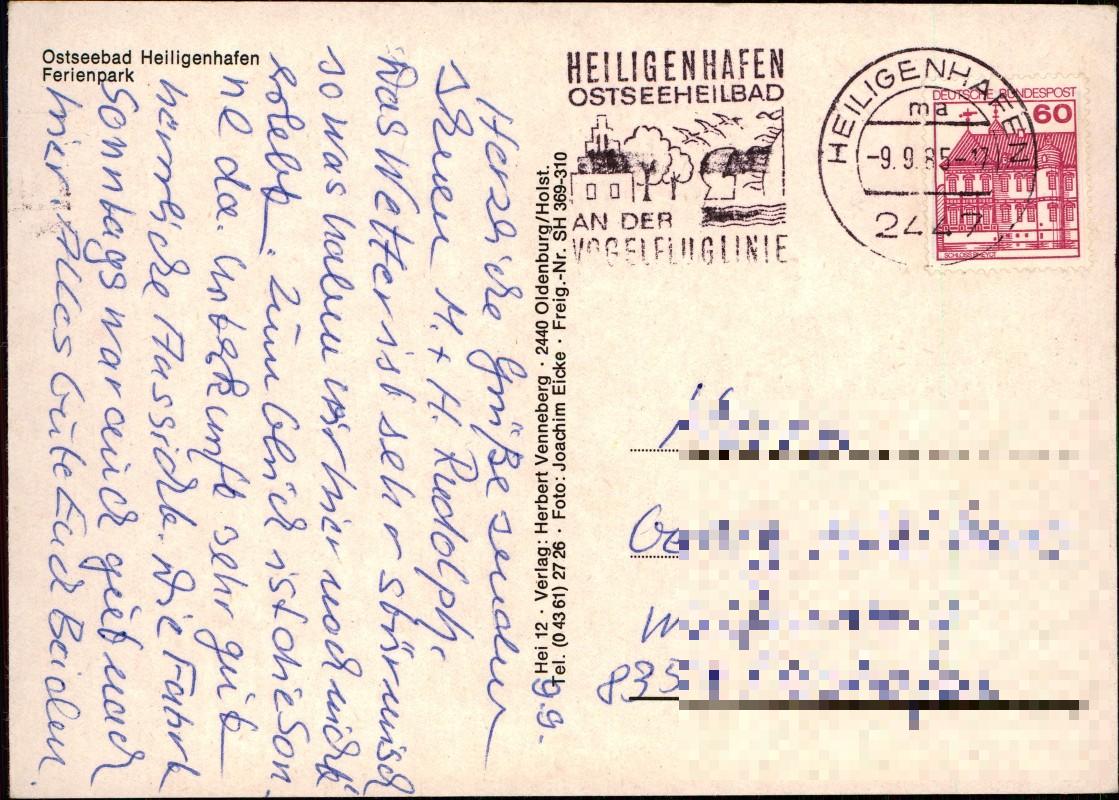 Ostseebad Heiligenhafen
Ferienpark
9.9.
Herzliche Grüße senden
Ihnen M. + H. Rudolph.
Das Wetter ist sehr stürmisch
so was haben wir hier noch nicht
erlebt. Zum Glück ist die Son
ne da. Unterkunft sehr gut
herrliche Aussicht. Die Fahrt
Sonntags war auch gut nach
hier. Alles Gute Euch Beiden.
Hei 12 · Verlag: Herbert Venneberg · 2440 Oldenburg/Holst.
Tel. (0 43 61) 27 26 · Foto: Joachim Eicke · Freig.-Nr. SH 369-310
HEILIGENHAFEN
OSTSEEHEILBAD
AN DER
VOGELFLUGLINIE
HEILIGENHAFEN
ma
-9.9.85-17
2447
DEUTSCHE BUNDESPOST
60
SCHLOSS RHEYDT
835